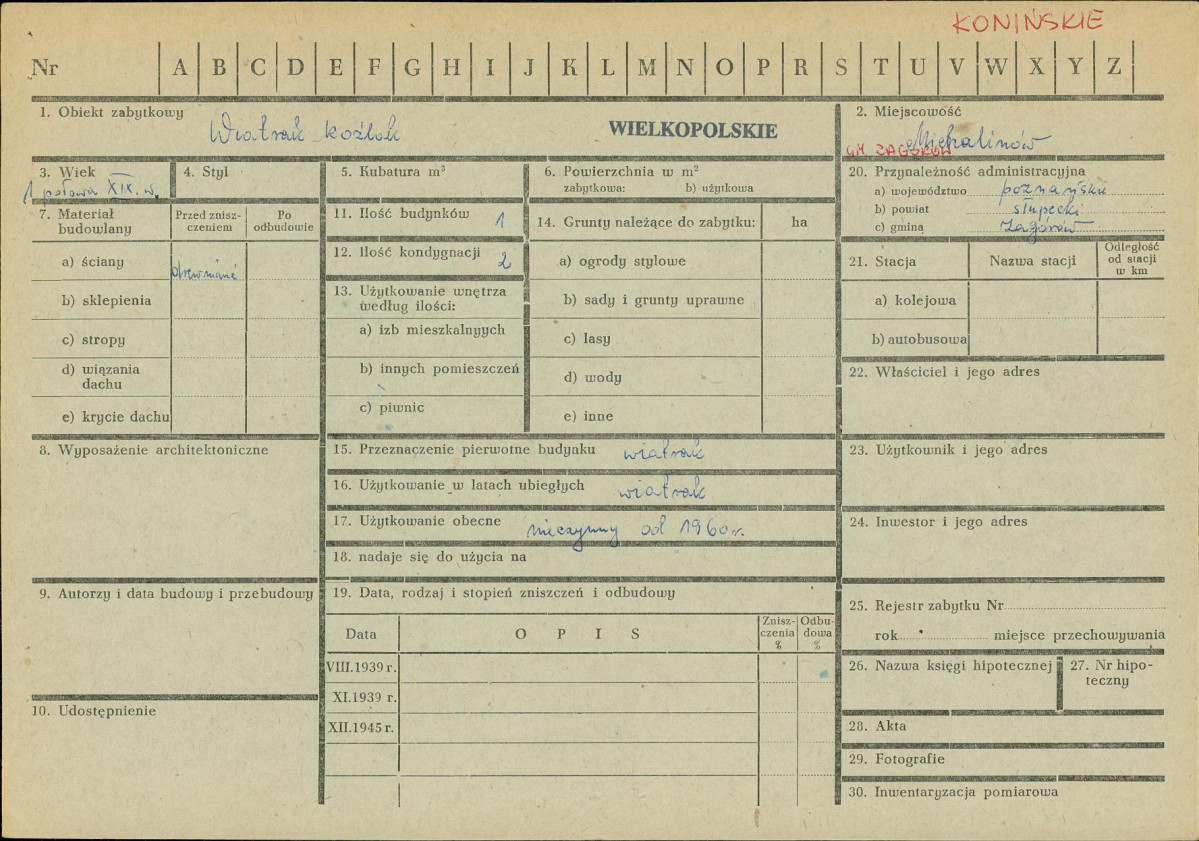 KONIŃSKIE
Nr A B C D E F G H I J K L M N O P R S T U V W X Y Z
1. Obiekt zabytkowy
Wiatrak koźlak
WIELKOPOLSKIE
2. Miejscowość
Michalinów
GM. ZAGÓRÓW
3. Wiek
1 połowa XIX. w.
4. Styl
5. Kubatura m³
6. Powierzchnia w m²
zabytkowa: b) użytkowa
20. Przynależność administracyjna
a) województwo poznańskie
b) powiat słupecki
c) gmina Zagórów
7. Materiał budowlany
Przed zniszczeniem
Po odbudowie
a) ściany drewniane
b) sklepienia
c) stropy
d) wiązania dachu
e) krycie dachu
11. Ilość budynków 1
12. Ilość kondygnacji 2
13. Użytkowanie wnętrza według ilości:
a) izb mieszkalnych
b) innych pomieszczeń
c) piwnic
14. Grunty należące do zabytku: ha
a) ogrody stylowe
b) sady i grunty uprawne
c) lasy
d) wody
e) inne
21. Stacja
Nazwa stacji
Odległość od stacji w km
a) kolejowa
b) autobusowa
22. Właściciel i jego adres
8. Wyposażenie architektoniczne
15. Przeznaczenie pierwotne budynku wiatrak
16. Użytkowanie w latach ubiegłych wiatrak
17. Użytkowanie obecne nieczynny od 1960 r.
18. nadaje się do użycia na
23. Użytkownik i jego adres
24. Inwestor i jego adres
9. Autorzy i data budowy i przebudowy
19. Data, rodzaj i stopień zniszczeń i odbudowy
Data
O P I S
Zniszczenia %
Odbudowa %
VIII.1939 r.
XI.1939 r.
XII.1945 r.
25. Rejestr zabytku Nr
rok miejsce przechowywania
26. Nazwa księgi hipotecznej
27. Nr hipoteczny
10. Udostępnienie
28. Akta
29. Fotografie
30. Inwentaryzacja pomiarowa